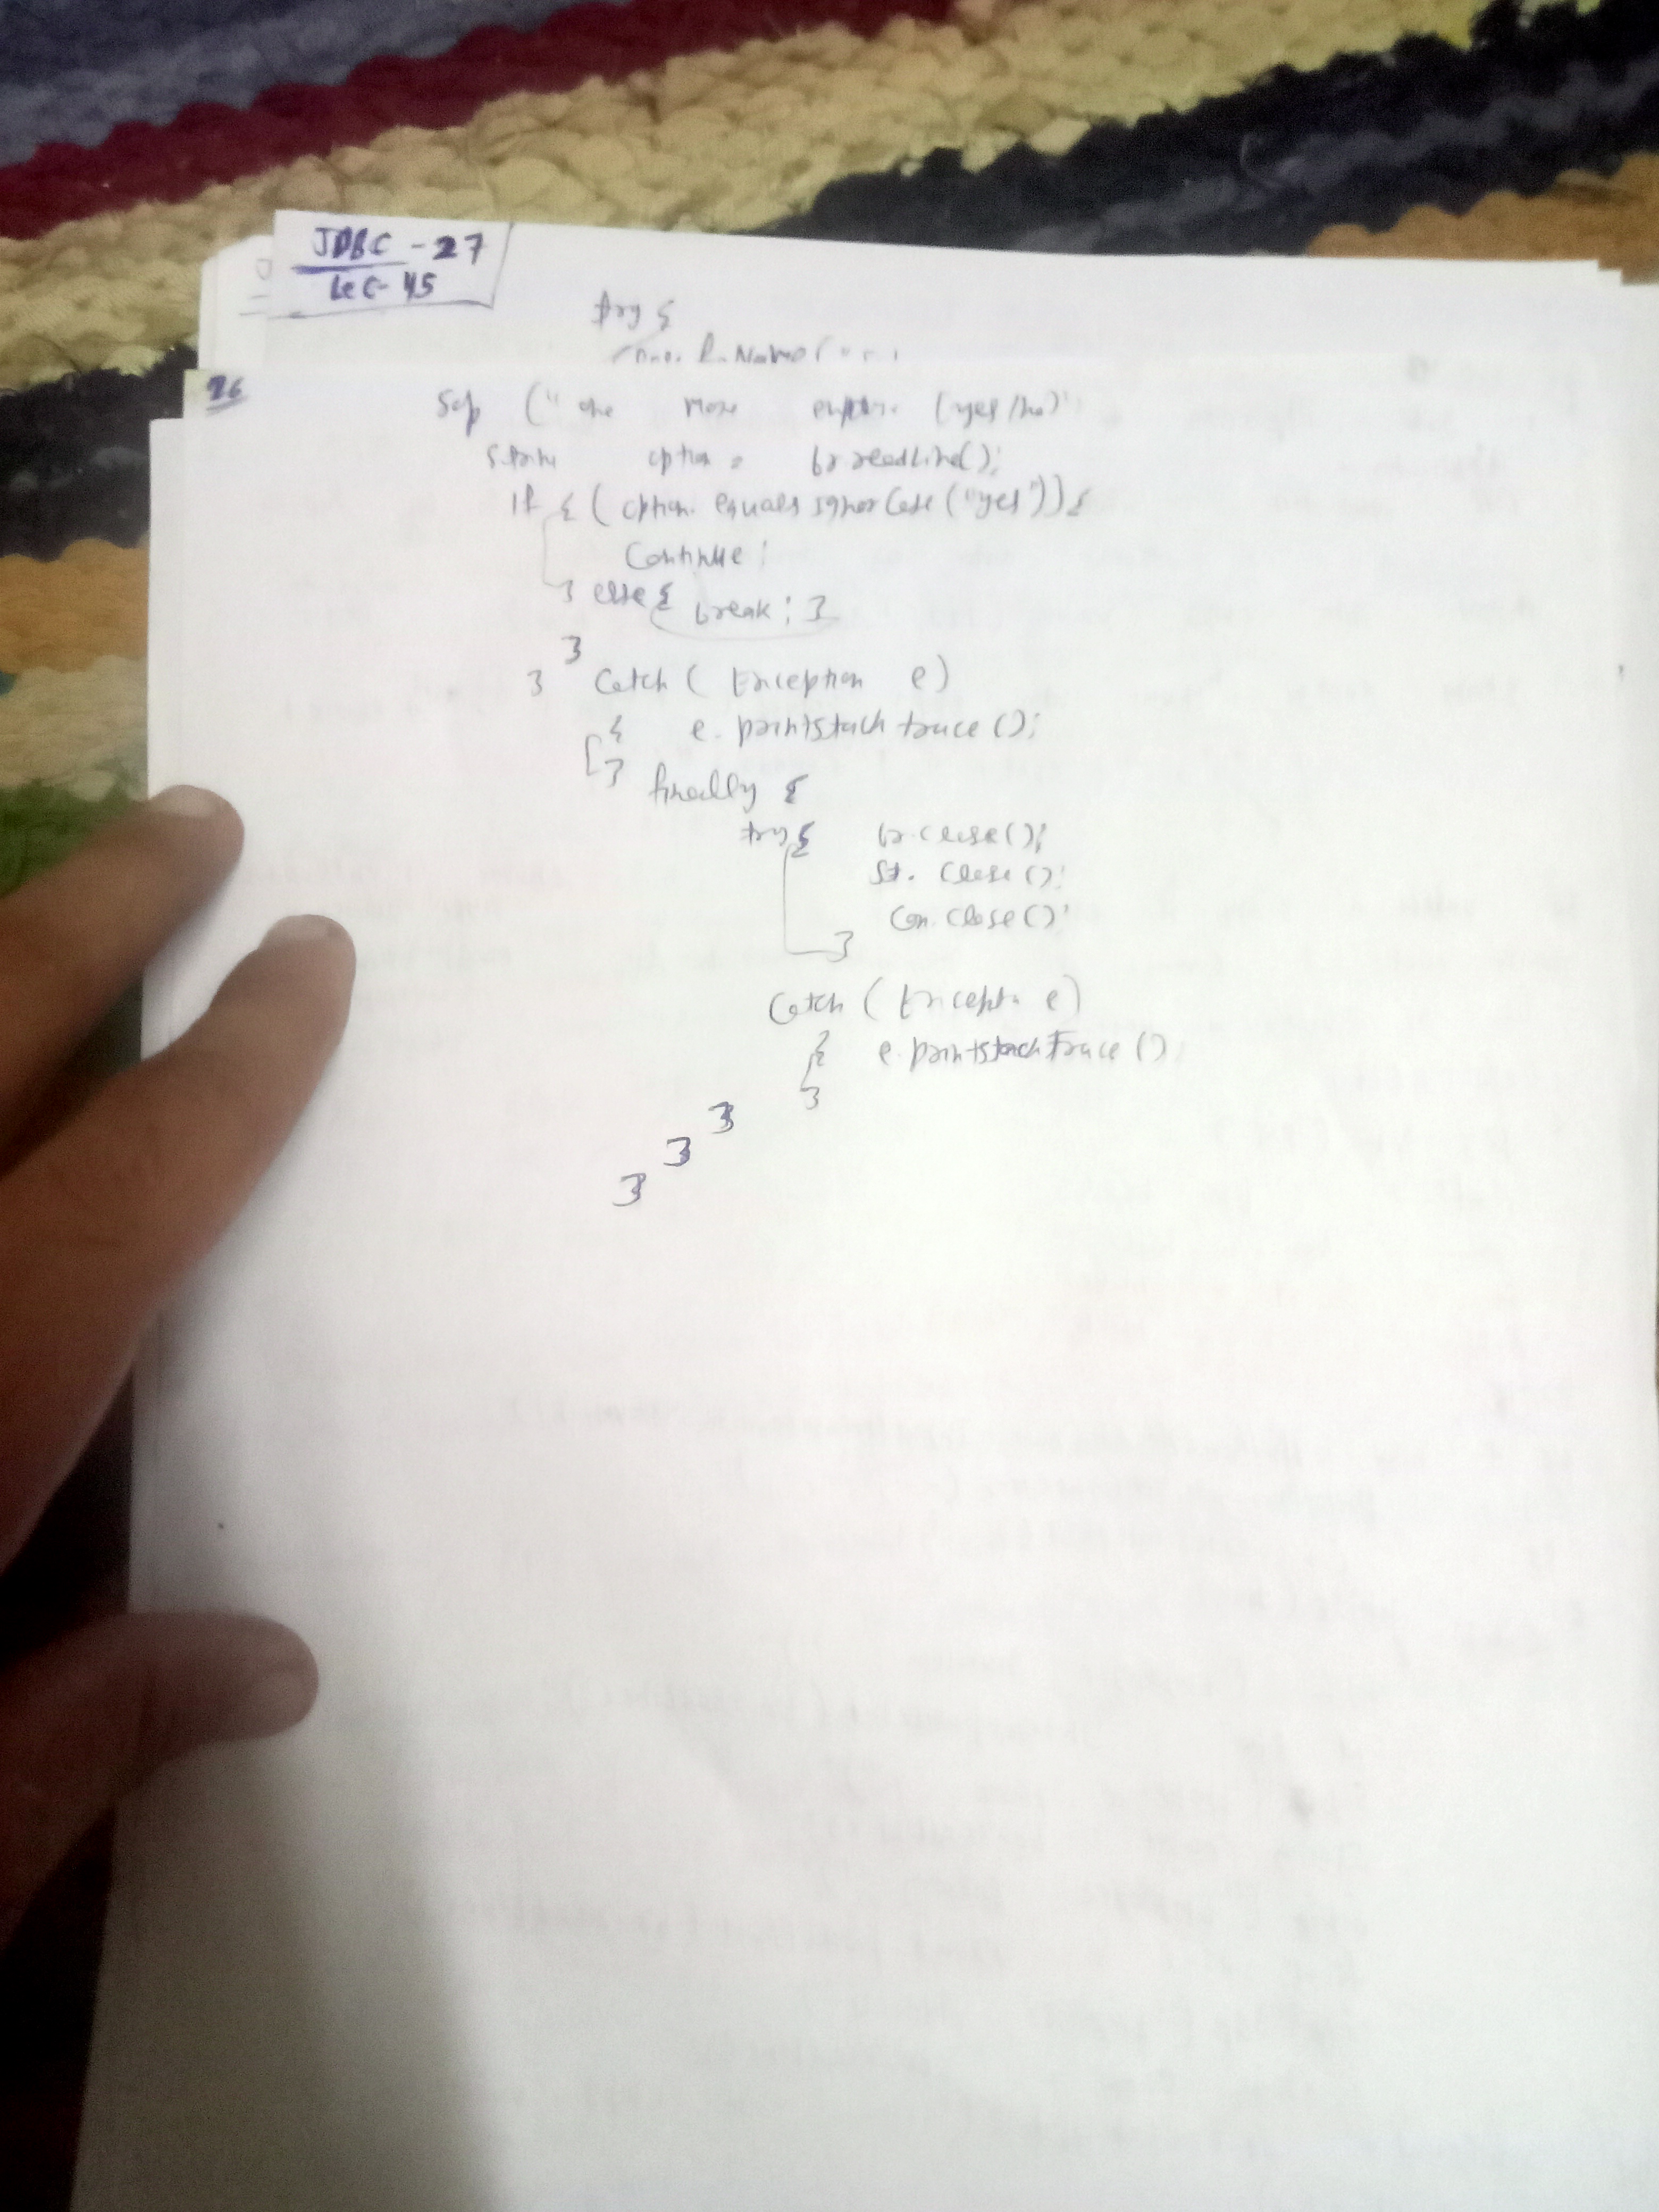 JDBC - 27
Lec- 45
try {
26
Sop (" one more (yes/no)"
option = br readLine();
If { ( option. equals ignorCase ("yes")) {
Continue ;
} else {
break ; }
}
} Catch ( Exception e)
{ e. printstack trace ();
} finally {
try { br. close();
St. Close ();
Con. Close ();
}
Catch ( Excepta e)
{ e. printstackTrace ();
}
}
}
}